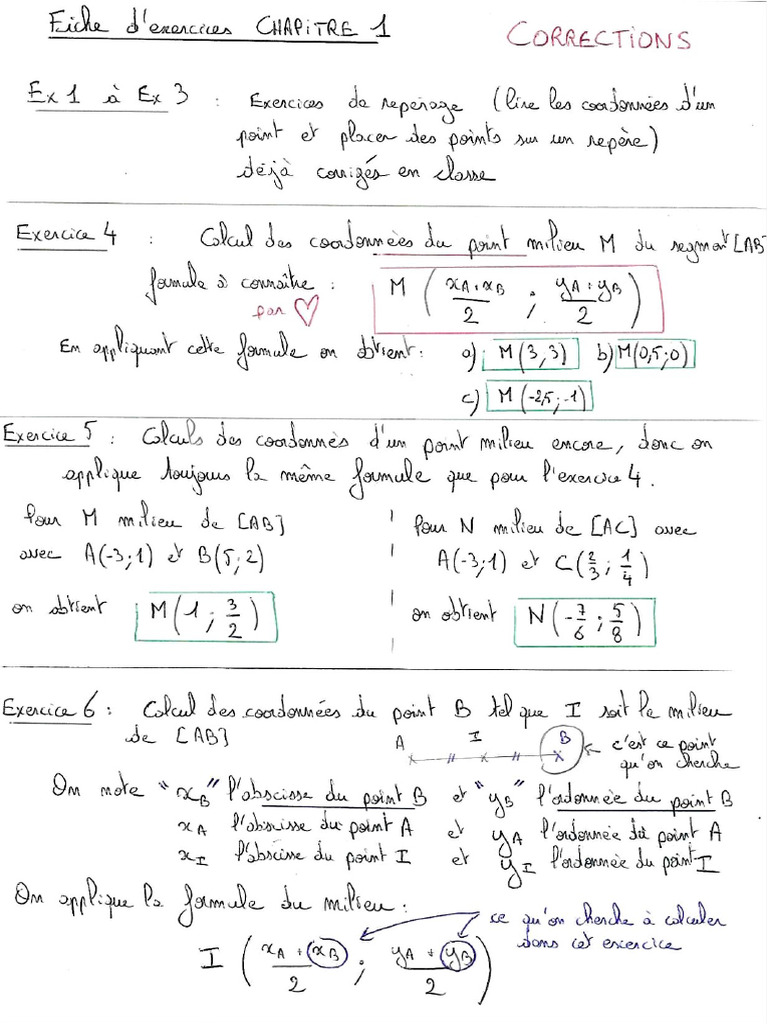 Fiche d'exercices CHAPITRE 1 CORRECTIONS
Ex 1 à Ex 3 : Exercices de repérage (lire les coordonnées d'un
point et placer des points sur un repère)
déjà corrigés en classe
Exercice 4 : Calcul des coordonnées du point milieu M du segment [AB]
formule à connaître : M ( (xA + xB)/2 ; (yA + yB)/2 )
par ♡
En appliquant cette formule on obtient : a) M(3,3) b) M(0,5;0)
c) M(-2,5;-1)
Exercice 5 : Calculs des coordonnés d'un point milieu encore, donc on
applique toujours la même formule que pour l'exercice 4.
Pour M milieu de [AB]
avec A(-3;1) et B(5;2)
on obtient M(1 ; 3/2)
Pour N milieu de [AC] avec
A(-3;1) et C(2/3 ; 1/4)
on obtient N(-7/6 ; 5/8)
Exercice 6 : Calcul des coordonnées du point B tel que I soit le milieu
de [AB]
A I B
c'est ce point
qu'on cherche
On note "xB" l'abscisse du point B et "yB" l'ordonnée du point B
xA l'abscisse du point A et yA l'ordonnée du point A
xI l'abscisse du point I et yI l'ordonnée du point I
On applique la formule du milieu :
ce qu'on cherche à calculer
dans cet exercice
I ( (xA + xB)/2 ; (yA + yB)/2 )